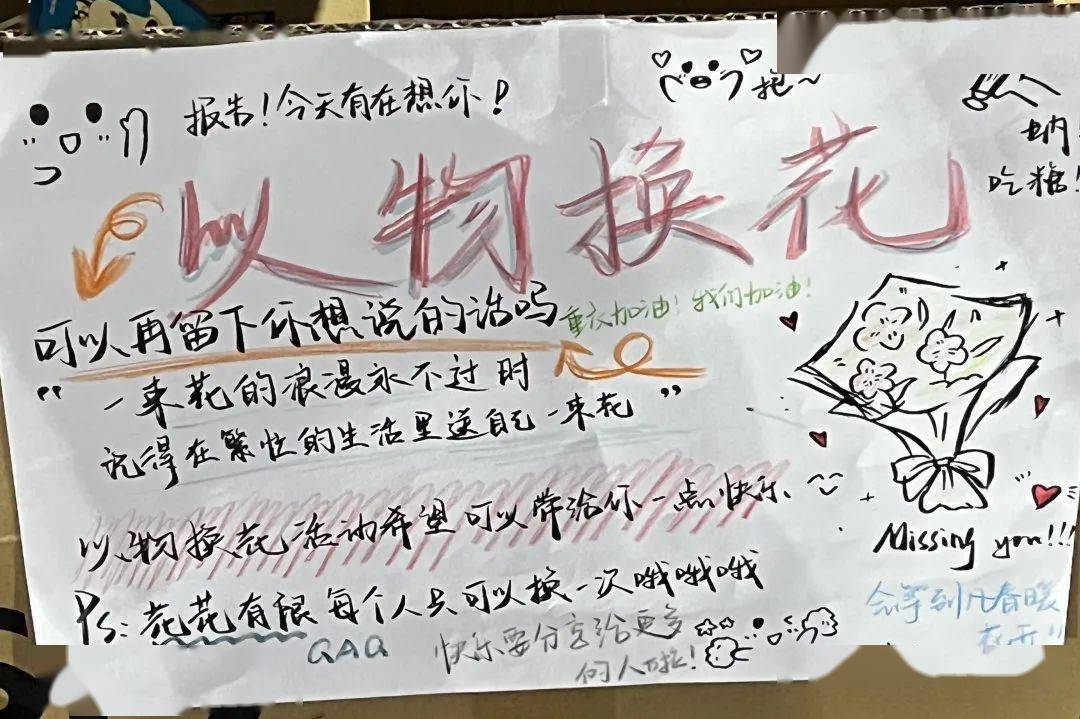 报告！今天有在想你！
抱~
呐
吃糖！
以物换花
可以再留下你想说的话吗
重庆加油！我们加油！
"一束花的浪漫永不过时
记得在繁忙的生活里送自己一束花"
以物换花活动希望可以带给你一点快乐
Missing you!!!
Ps:花花有限每个人只可以换一次哦哦哦
QAQ
快乐要分享给更多
的人啦！
会等到春暖
花开